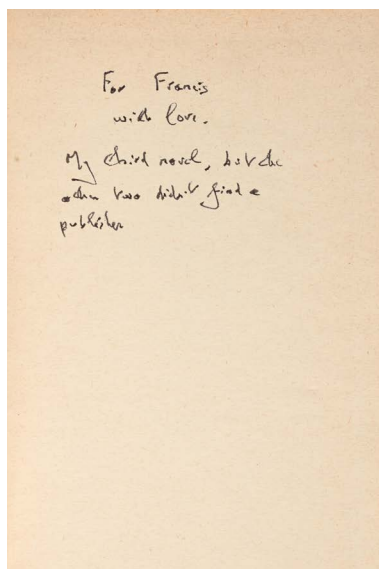 For Francis
with love.
My third novel, but the
other two didn't find a
publisher